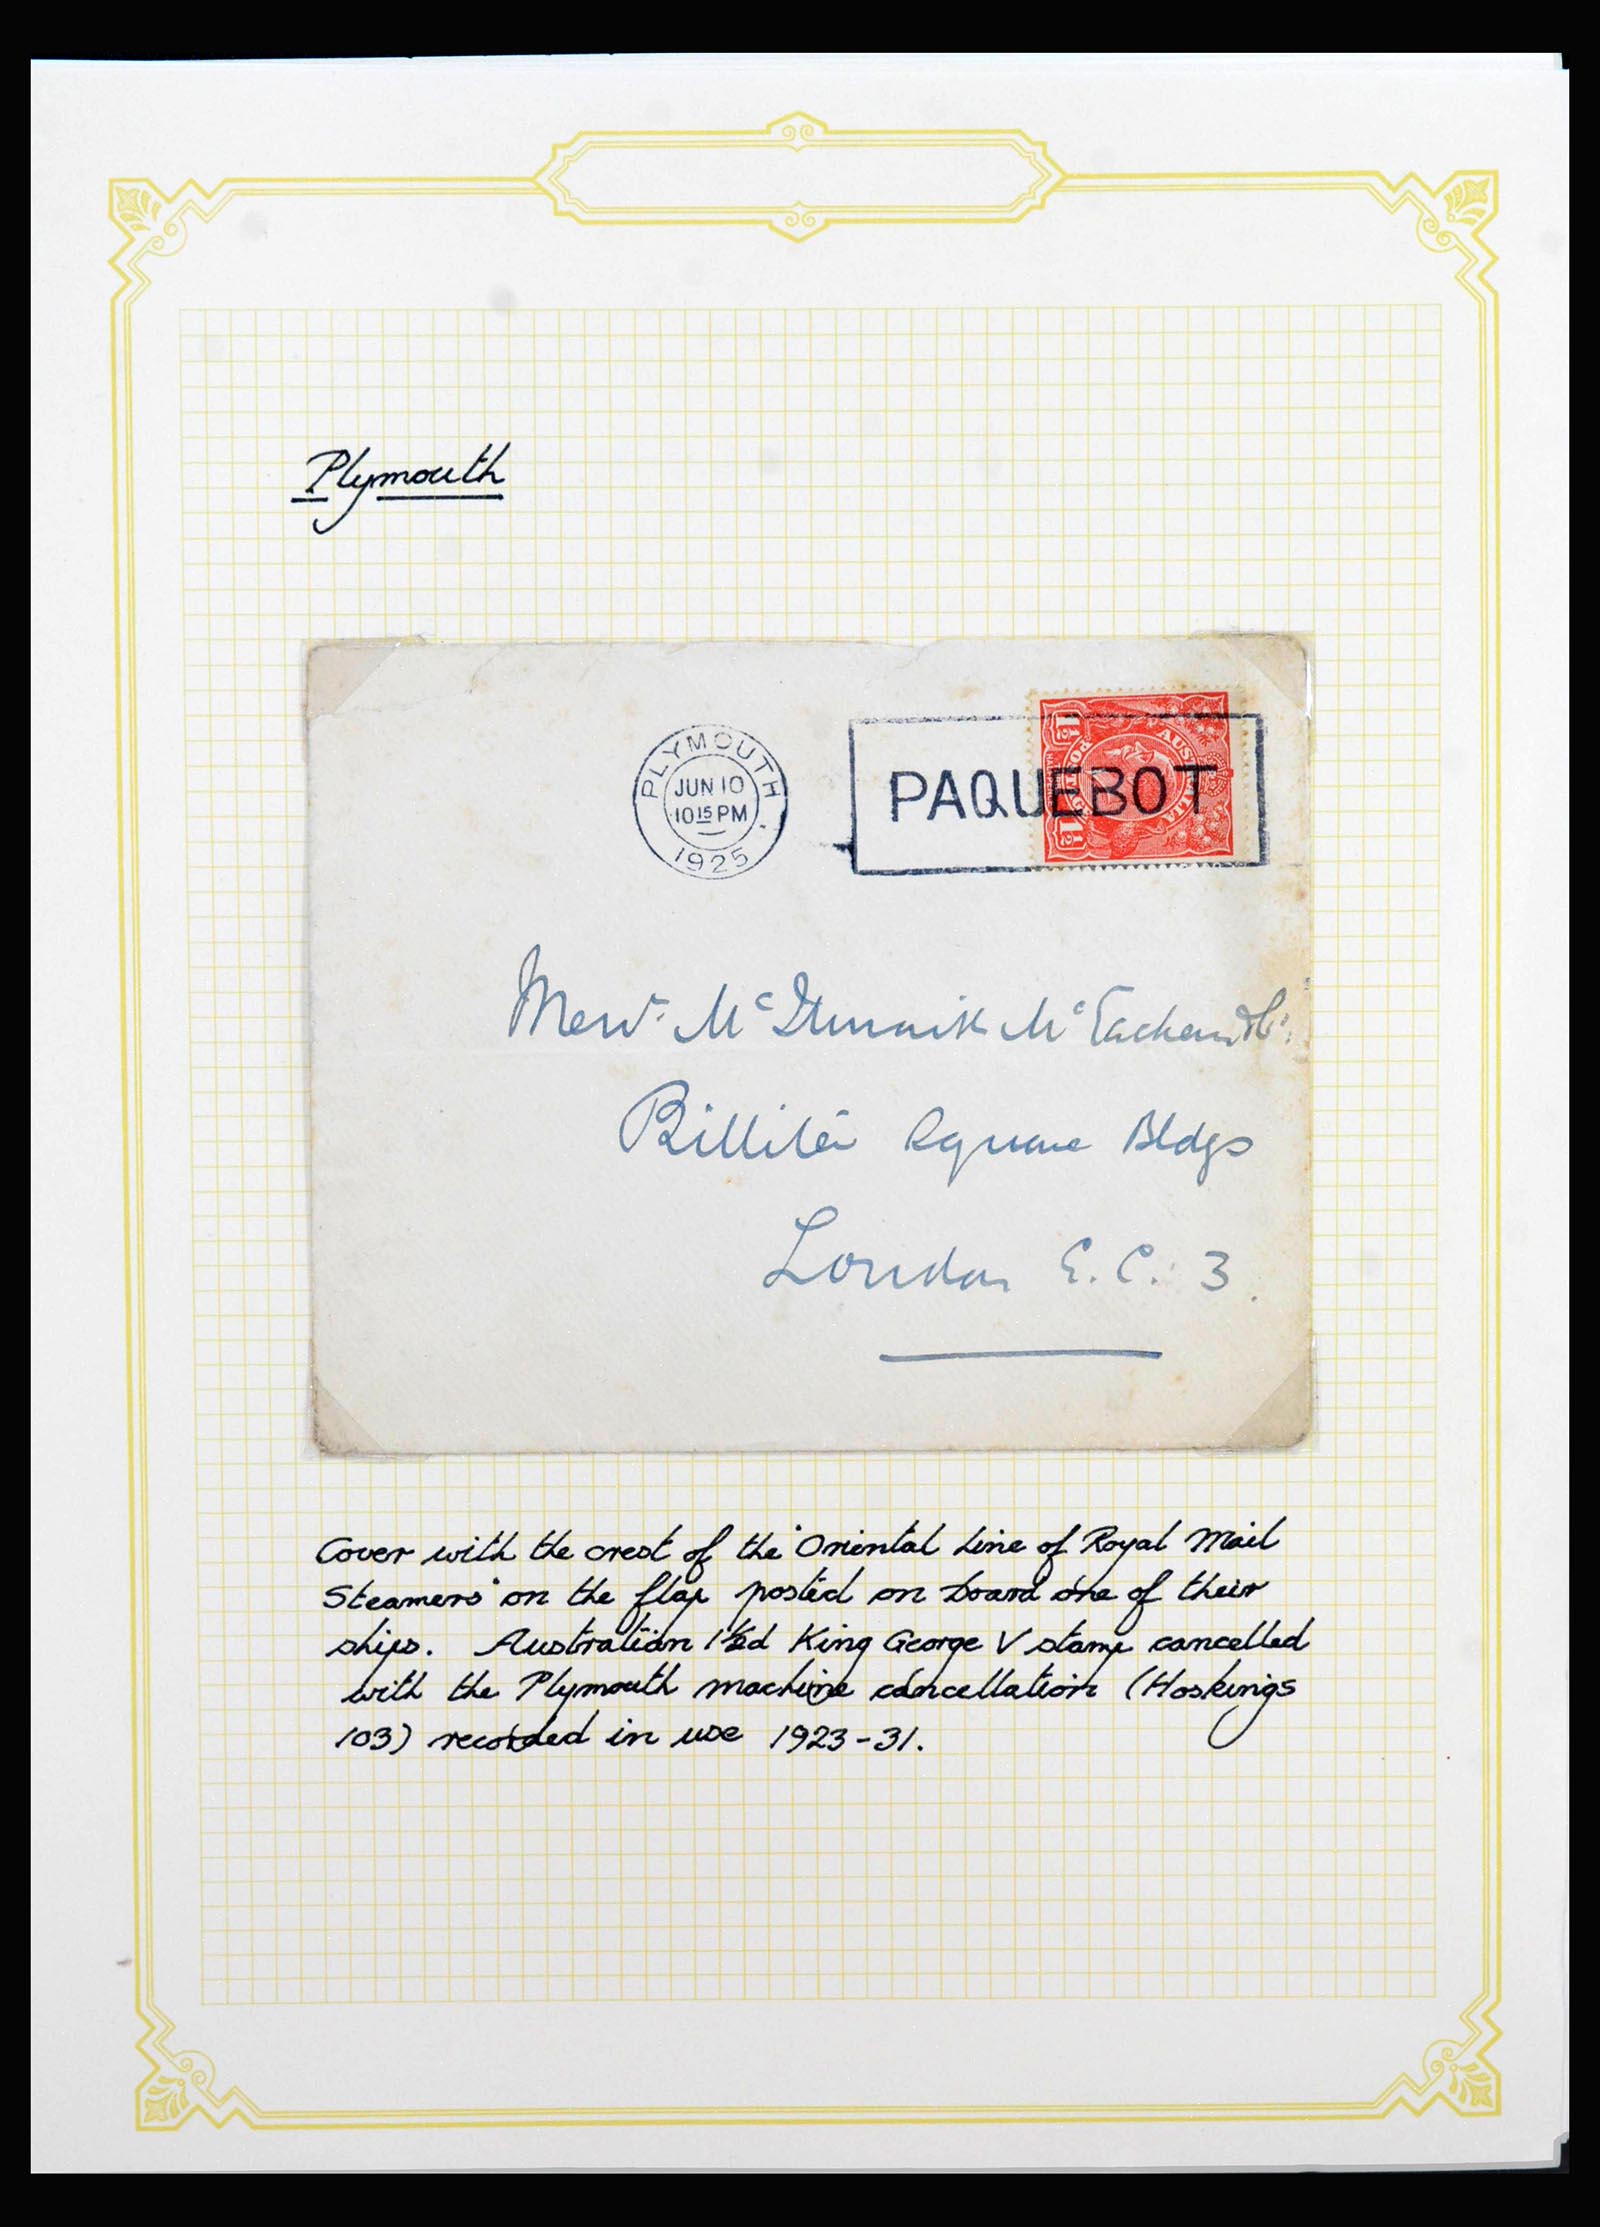 Plymouth
PLYMOUTH
JUN 10
10 15 PM
1925
PAQUEBOT
AUSTRALIA
POSTAGE
1½
1½
Messrs. McIlwraith McEacharn & Co.
Billiter Square Bldgs
London E.C. 3.
Cover with the crest of the "Oriental Line of Royal Mail
Steamers" on the flap posted on board one of their
ships. Australian 1½d King George V stamp cancelled
with the Plymouth machine cancellation (Hoskings
103) recorded in use 1923-31.